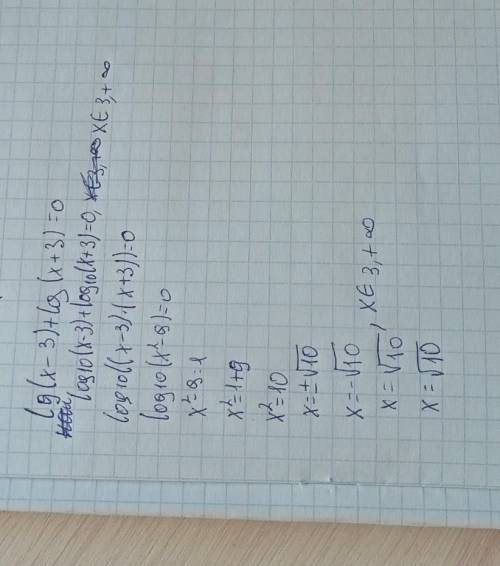 lg(x-3)+lg(x+3)=0
log10(x-3)+log10(x+3)=0, x∈3,+∞ x∈3,+∞
log10((x-3)·(x+3))=0
log10(x²-9)=0
x²-9=1
x²=1+9
x²=10
x=±√10
x=-√10
x=√10, x∈3,+∞
x=√10